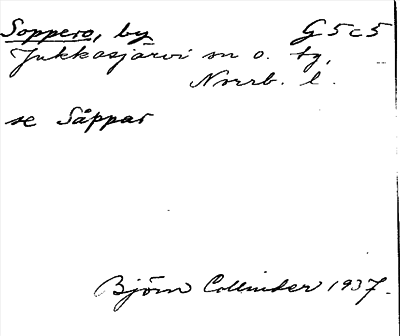 Soppero, by G 5 c 5
Jukkasjärvi sn o. tg,
Norrb. l.
se Såppar
Björn Collinder 1937.